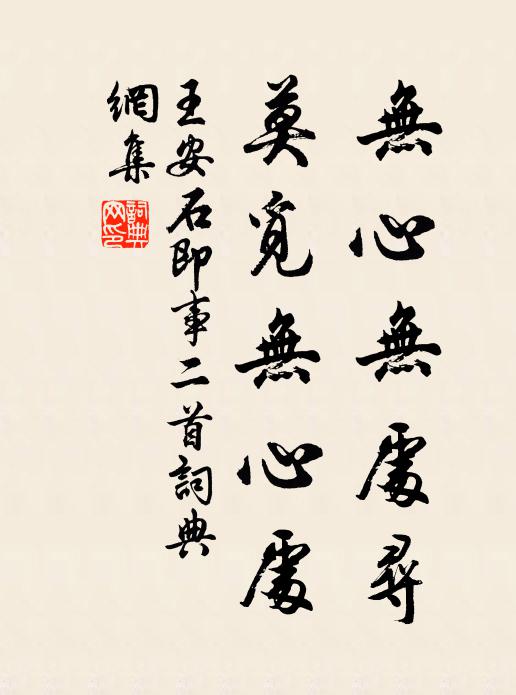 無心無處尋
莫覓無心處
王安石即事二首詞典
網集
詞典網印